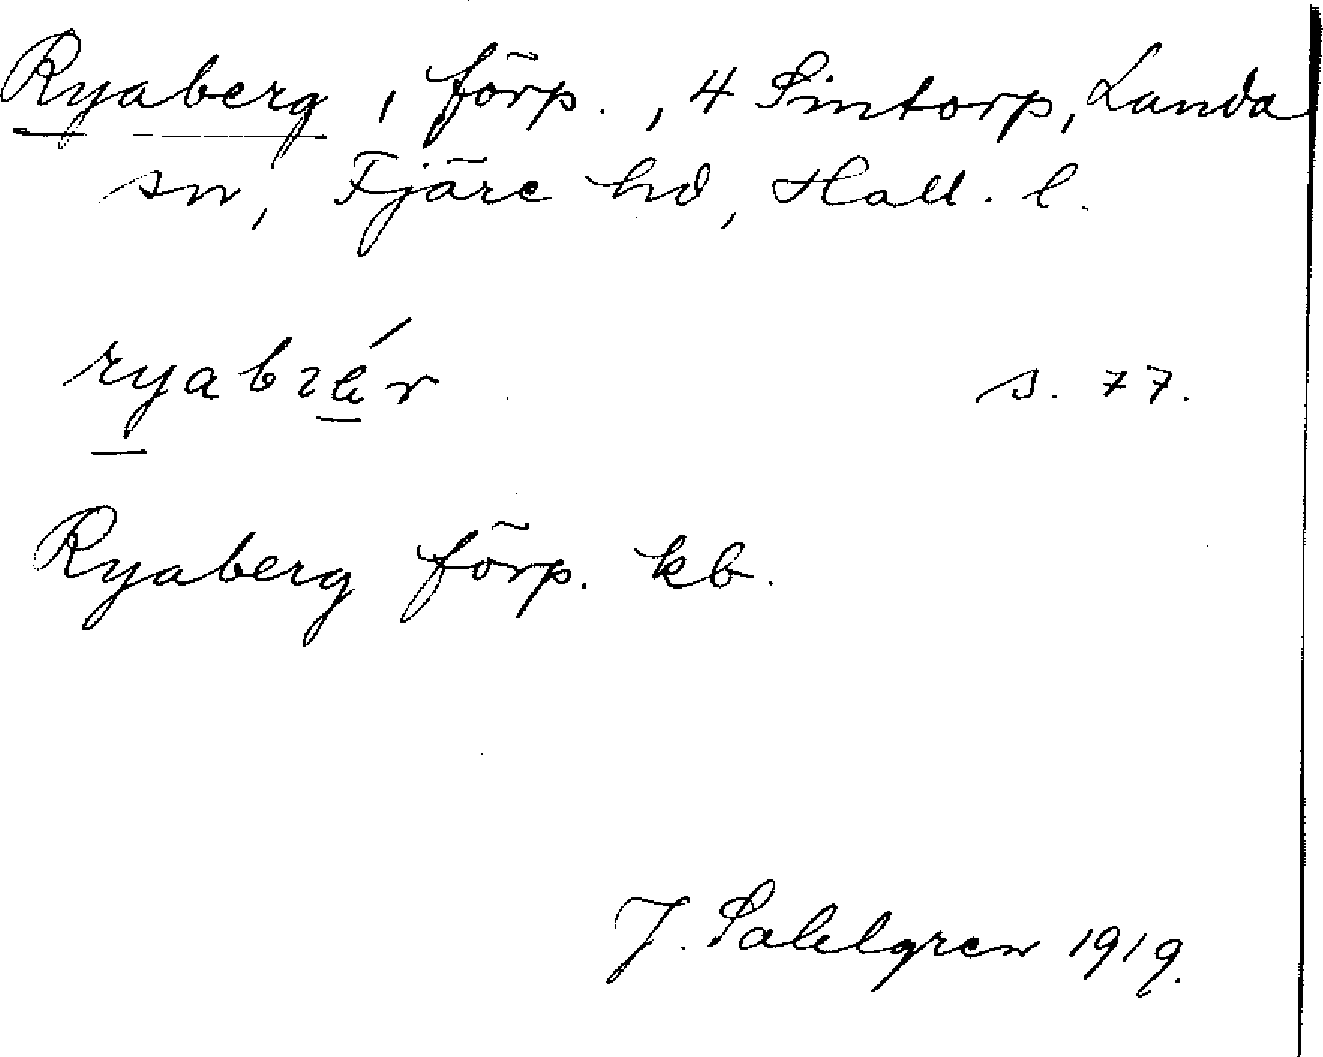 Ryaberg, förp., 4 Sintorp, Landa
sn, Fjäre hd, Hall. l.
s. 77.
Ryaberg förp. kb.
J. Sahlgren 1919.